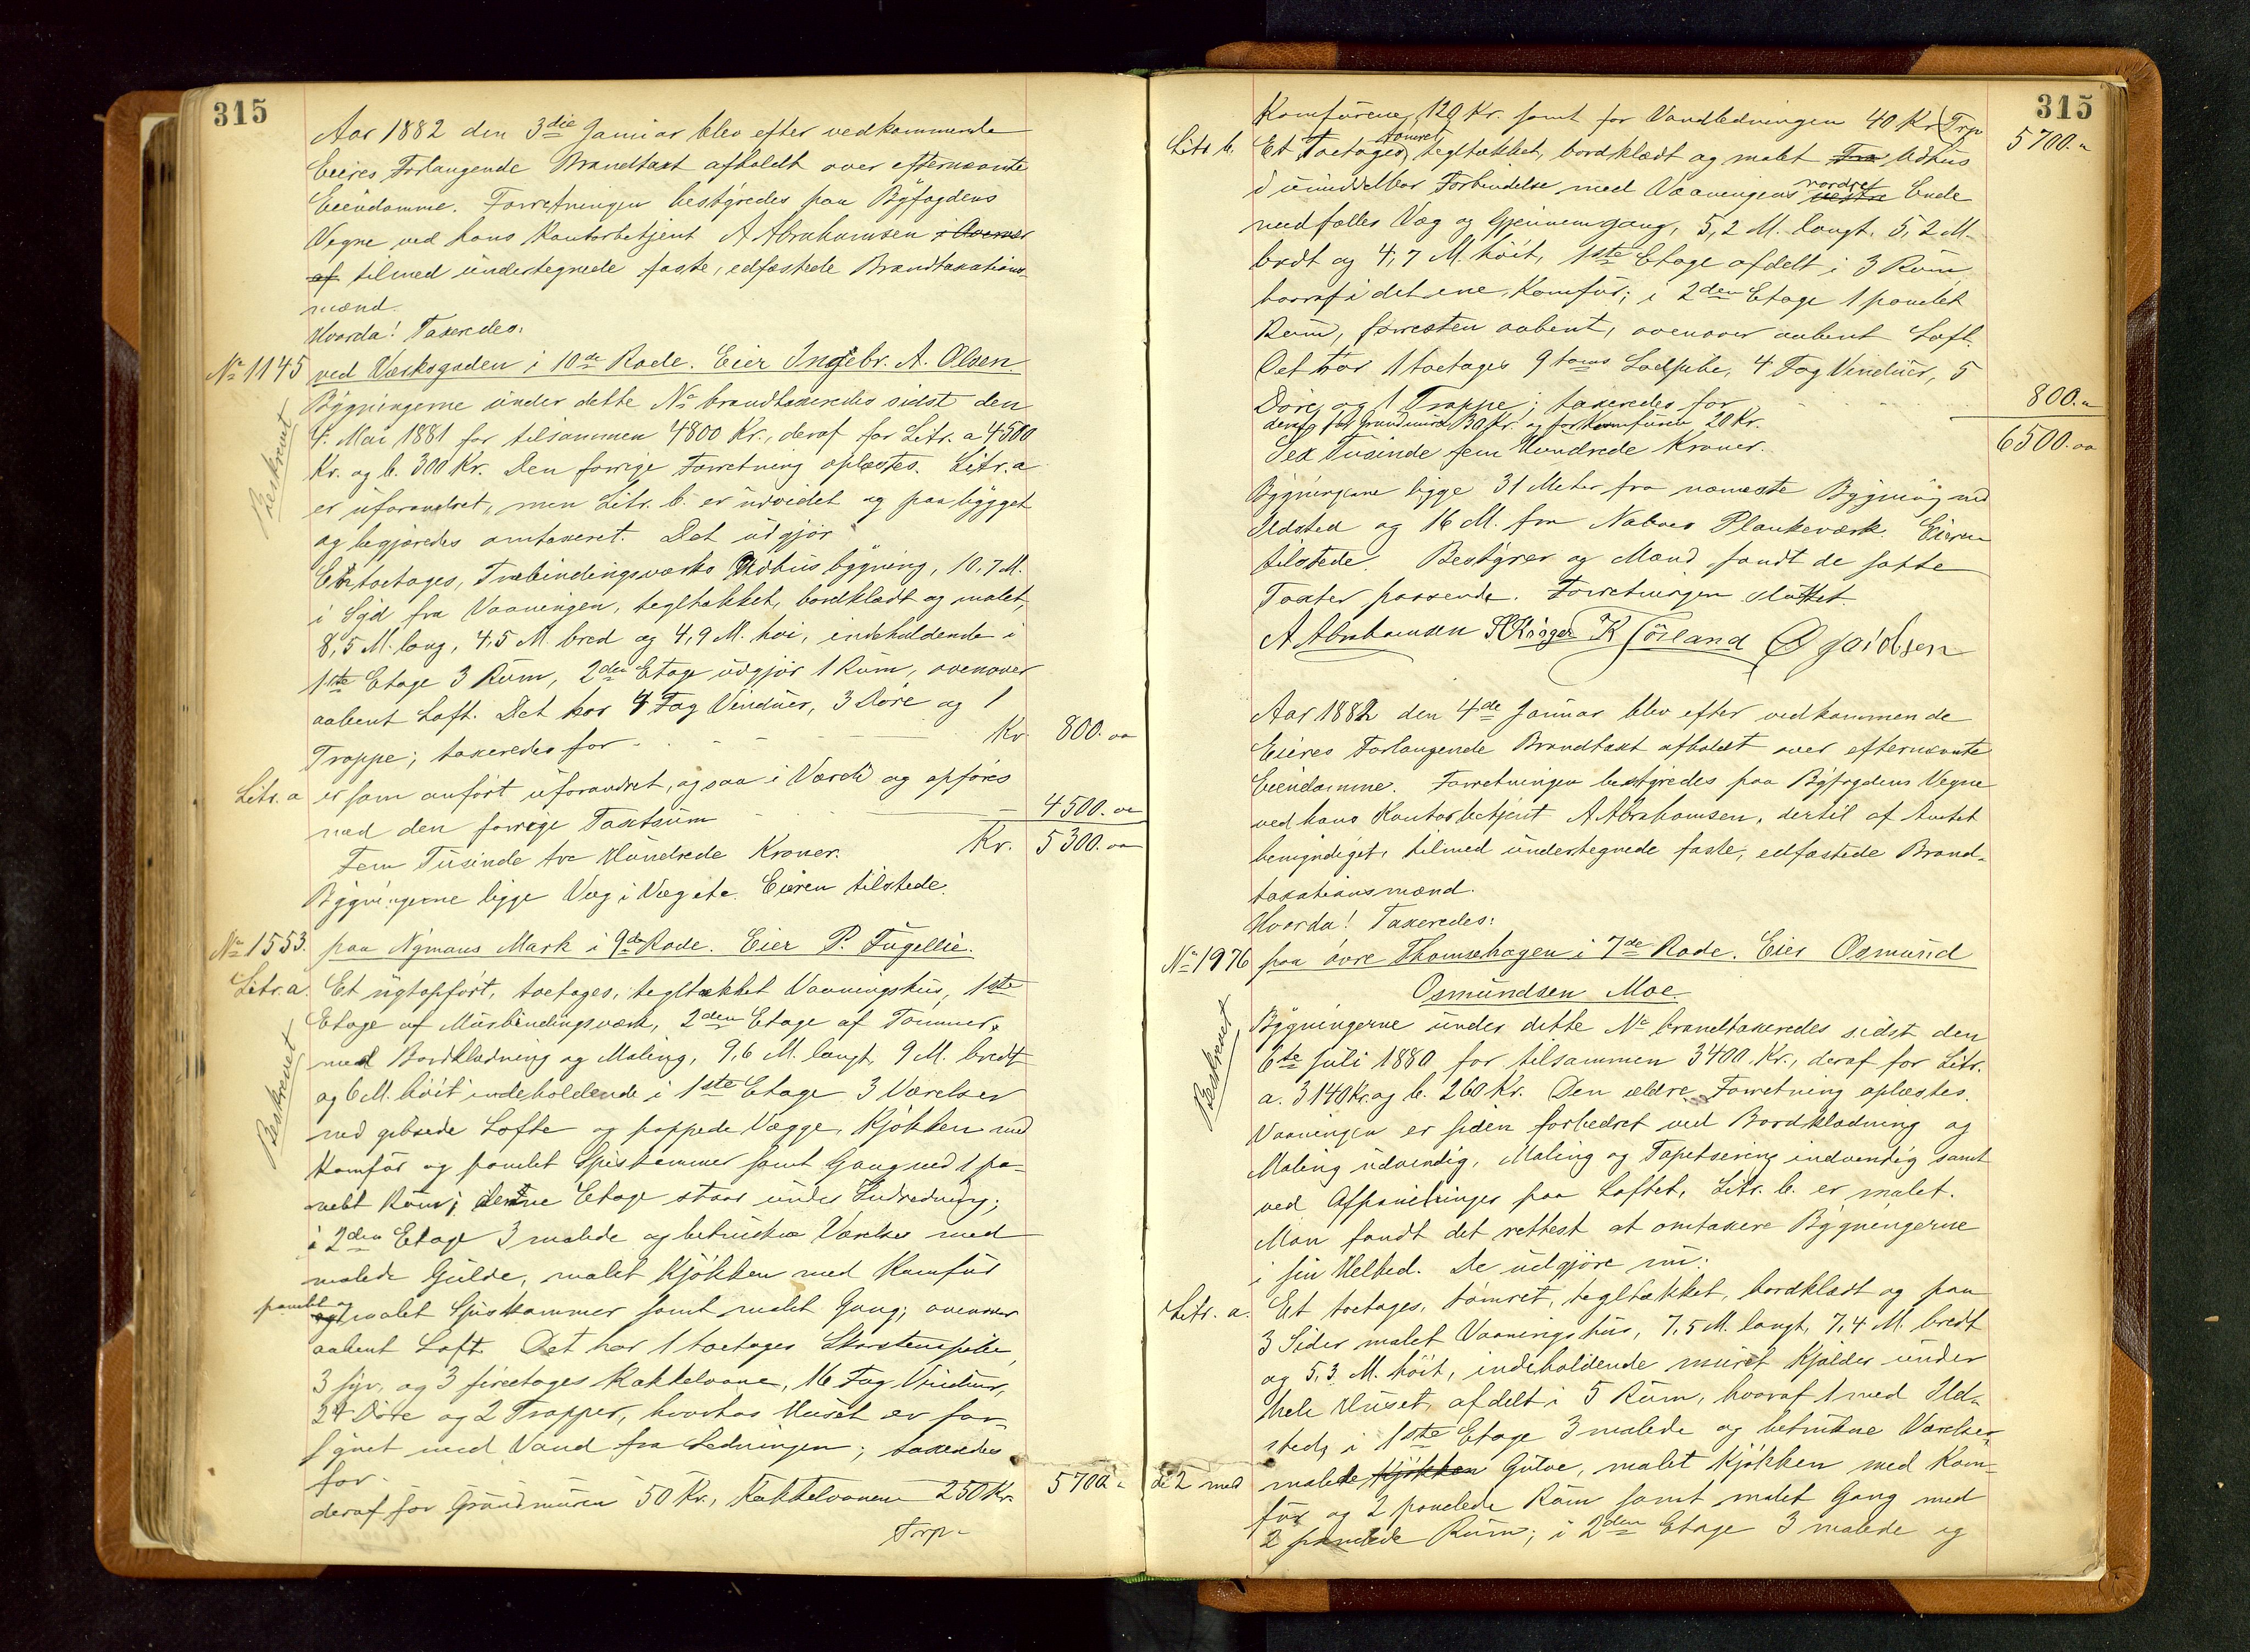 315
Aar 1882 den 3die Januar blev efter vedkommende
Eieres Forlangende Brandtaxt afholdt over efternævnte
Eiendomme. Forretningen bestyredes paa Byfogdens
Vegne ved hans Kontorbetjent A Abrahamsen
af tilmed undertegnede faste, edfæstede Brandtaxations
mænd.
Hvorda! Taxeredes:
No 1145 ved Væskegaden i 10de Rode. Eier Ingebr. A. Olsen.
Bygningerne under dette No brandtaxeredes sidst den
4. Mai 1881 for tilsammen 4800 Kr., deraf for Litr. a 4500
Kr. og b. 300 Kr. Den forrige Forretning oplæstes. Litr. a
Beskrevet
er uforandret, men Litr. b. er udvidet og paabygget
og begjæredes omtaxeret. Det udgjør
En toetages, Træbindingsværks Udhusbygning, 10,7 M.
i Syd fra Vaaningen, tegltækket, bordklædt og malet,
8,5 M. lang, 4,5 M. bred og 4,9 M. høi, indeholdende i
1ste Etage 3 Rum, 2den Etage udgjør 1 Rum, ovenover
aabent Loft. Det har 4 Fag Vinduer, 3 Døre og 1
Trappe; taxeredes for Kr. 800. oo
Litr. a er som anført uforandret, ogsaa i Værdi og opføres
med den forrige Taxtsum 4500. oo
Fem Tusinde tre Hundrede Kroner. Kr. 5300. oo
Bygningerne ligge Væg i Væg etc. Eieren tilstede.
No 1553. paa Nymans Mark i 9de Rode. Eier P. Fugellie.
Litr. a. Et nytopført, toetages, tegltækket Vaaningshus, 1ste
Etage af Murbindingsværk, 2den Etage af Tømmer,
med Bordklædning og Maling, 9,6 M. langt, 9 M. bredt
Beskrevet
og 6 M. høit indeholdende i 1ste Etage 3 Værelser
med gibsede Lofte og pappede Vægge, Kjøkken med
Komfur og panelet Spiskammer samt Gang med 1 pa-
nelt Rum; denne Etage staar under Indredning;
i 2den Etage 3 malede og betrukne Værelser med
malede Gulve, malet Kjøkken med Komfur
panelt og
og malet Spiskammer samt malet Gang; ovenover
aabent Loft. Det har 1 toetages Skorstenspibe,
3 fyr, og 3 fireetages Kakkelovne, 16 Fag Vinduer,
24 Døre og 2 Trapper, hvorhos Huset er for-
synet med Vand fra Ledningen; taxeredes
for 5700. "
deraf for Grundmuren 50 Kr., Kakkelovnene 250 Kr.
Trp-
315
Komfurene 120 Kr. samt for Vandledningen 40 Kr. Trp 5700. "
tømret
Litr b. Et toetages, tegltækket, bordklædt og malet Udhus
nordre
i umiddelbar Forbindelse med Vaaningens vestre Ende
med fælles Væg og Gjennemgang, 5,2 M. langt, 5,2 M.
bredt og 4,7 M. høit, 1ste Etage afdelt i 3 Rum
hvoraf i det ene Komfur; i 2den Etage 1 panelet
Rum, forresten aabent, ovenover aabent Loft.
Det har 1 toetages 9 toms Lodpibe, 4 Fag Vinduer, 5
Døre og 1 Trappe; taxeredes for 800. "
deraf for Grundmuren 30 Kr. og for Komfuren 20 Kr.
Sex Tusinde fem Hundrede Kroner. 6500. oo
Bygningerne ligge 31 Meter fra nærmeste Bygning med
Ildsted og 16 M. fra Naboes Plankeværk. Eieren
tilstede. Bestyrer og Mænd fandt de satte
Taxter passende. Forretningen sluttet.
A Abrahamsen
Aar 1882 den 4de Januar blev efter vedkommende
Eieres Forlangende Brandtaxt afholdt over efternævnte
Eiendomme. Forretningen bestyredes paa Byfogdens Vegne
ved hans Kontorbetjent A Abrahamsen, dertil af Amtet
bemyndiget, tilmed undertegnede faste, edfæstede Brand-
taxationsmænd.
Hvorda! Taxeredes:
No 1976 paa øvre Thomsehagen i 7de Rode. Eier Osmund
Osmundsen Moe.
Bygningerne under dette No brandtaxeredes sidst den
6te Juli 1880 for tilsammen 3400 Kr., deraf for Litr.
a. 3140 Kr. og b. 260 Kr. Den ældre Forretning oplæstes.
Beskrevet
Vaaningen er siden forbedret ved Bordklædning og
Maling udvendig, Maling og Tapetsering indvendig samt
ved Afpanelinger paa Loftet, Litr. b. er malet.
Man fandt det rettest at omtaxere Bygningerne
i sin Helhed. De udgjøre nu:
Litr. a. Et toetages, tømret, tegltækket, bordklædt og paa
3 Sider malet Vaaningshus, 7,5 M. langt, 7,4 M. bredt
og 5,3 M. høit, indeholdende muret Kjælder under
hele Huset, afdelt i 5 Rum, hvoraf 1 med Ild-
sted, i 1ste Etage 3 malede og betrukne Værelser,
de 2 med malede Kjøkken Gulve, malet Kjøkken med Kom-
fur og 2 panelede Rum samt malet Gang med
2 panelede Rum; i 2den Etage 3 malede og